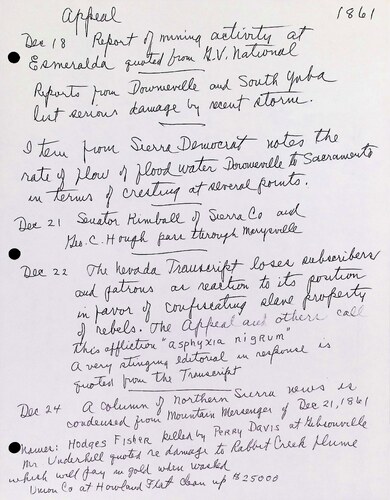 Appeal 1861
Dec 18 Report of mining activity at
Esmeralda quoted from G.V. National
Reports from Downieville and South Yuba
list serious damage by recent storm.
Item from Sierra Democrat notes the
rate of flow of flood water Downieville to Sacramento
in terms of cresting at several points.
Dec 21 Senator Kimball of Sierra Co and
Geo. C. Hough pass through Marysville
Dec 22 The Nevada Transcript loses subscribers
and patrons as reaction to its position
in favor of confiscating slave property
of rebels. The Appeal and others call
this affliction "asphyxia nigrum"
A very stinging editorial in response is
quoted from the Transcript
Dec 24 A column of Northern Sierra news is
condensed from Mountain Messenger of Dec 21, 1861
Names: Hodges Fisher killed by Perry Davis at Gibsonville
Mr. Underhill quoted re damage to Rabbit Creek flume
which will pay in gold when washed
Union Co at Howland Flat clean up $25000